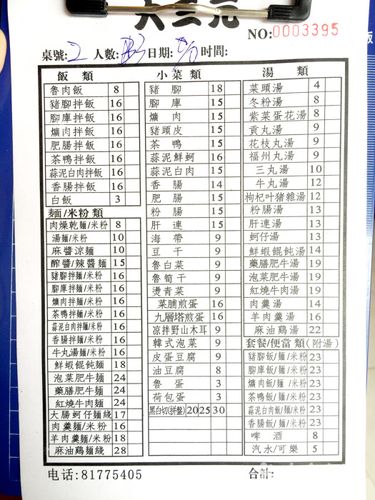 大三元
NO:0003395
桌號: 2 人數: 日期: 时间:
飯類
魯肉飯 8
豬腳拌飯 16
腳庫拌飯 16
爌肉拌飯 16
肥腸拌飯 16
茶鴨拌飯 16
蒜泥白肉拌飯 16
香腸拌飯 16
白飯 3
麵/米粉類
肉燥乾麵/米粉 8
湯麵/米粉 10
麻醬涼麵 10
醡醬/辣醬麵 15
豬腳拌麵/米粉 16
腳庫拌麵/米粉 16
爌肉拌麵/米粉 16
茶鴨拌麵/米粉 16
蒜泥白肉拌麵/米粉 16
香腸拌麵/米粉 16
牛丸湯麵/米粉 16
鮮蝦餛飩麵 18
泡菜肥牛麵 24
藥膳肥牛麵 24
紅燒牛肉麵 24
大腸蚵仔麵綫 17
肉羹麵/米粉 16
羊肉羹麵/米粉 18
麻油雞麵綫 28
小菜類
豬腳 18
腳庫 15
爌肉 15
豬頭皮 15
茶鴨 15
蒜泥鮮蚵 16
蒜泥白肉 15
香腸 14
肥腸 15
粉腸 15
肝連 15
海帶 9
豆干 9
魯白菜 9
魯筍干 9
燙青菜 9
菜脯煎蛋 16
九層塔煎蛋 16
凉拌野山木耳 9
韓式泡菜 9
皮蛋豆腐 9
油豆腐 8
魯蛋 3
荷包蛋 3
黑白切(拼盤) 20 25 30
湯類
菜頭湯 4
冬粉湯 8
紫菜蛋花湯 8
貢丸湯 9
花枝丸湯 9
福州丸湯 9
三丸湯 10
牛丸湯 12
枸杞叶猪雜湯 12
粉腸湯 13
肝連湯 13
蚵仔湯 13
鮮蝦餛飩湯 14
藥膳肥牛湯 19
泡菜肥牛湯 19
紅燒牛肉湯 19
肉羹湯 14
羊肉羹湯 16
麻油鷄湯 22
套餐/便當類(附湯)
豬腳飯/麵/米粉 23
腳庫飯/麵/米粉 23
爌肉飯/麵/米粉 23
茶鴨飯/麵/米粉 23
蒜泥白肉飯/麵/米粉 23
香腸飯/麵/米粉 23
啤酒 8
汽水/可樂 5
电话:81775405
合計: